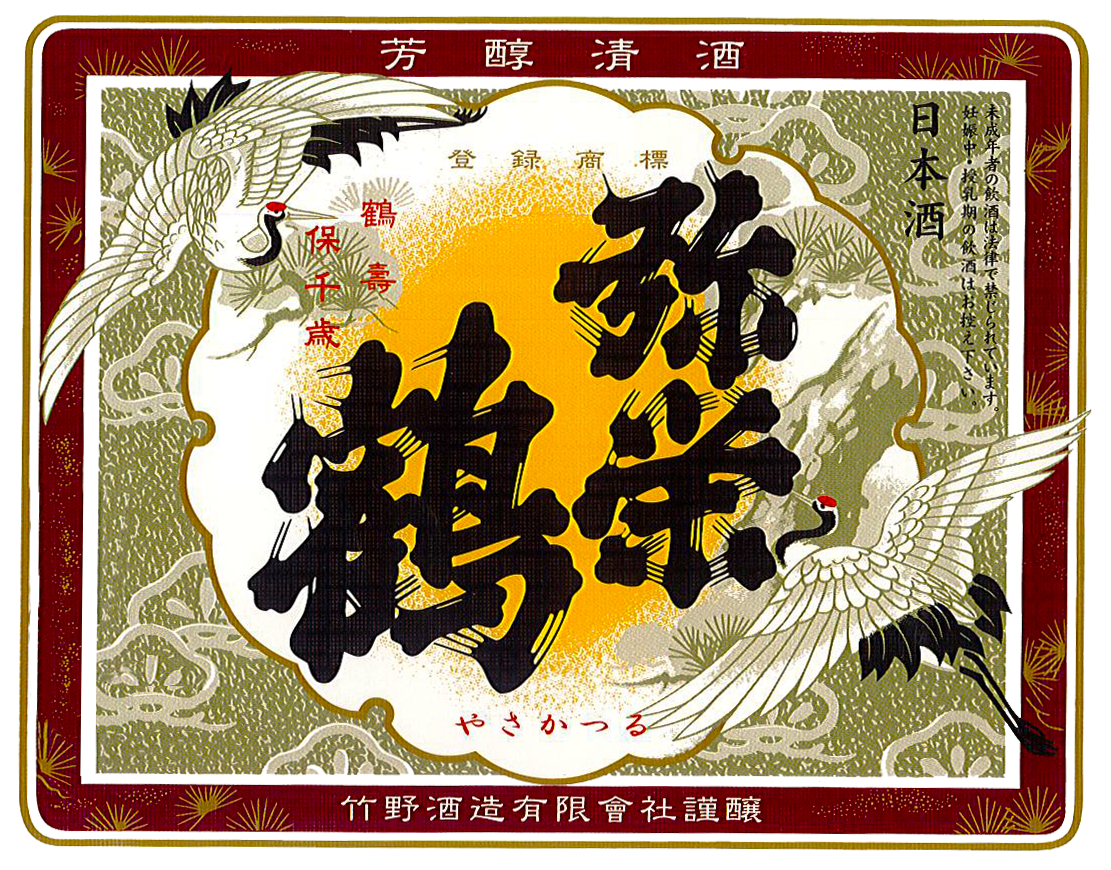 芳醇清酒
登録商標
日本酒
未成年者の飲酒は法律で禁じられています。
妊娠中・授乳期の飲酒はお控え下さい。
弥栄
鶴
鶴壽
保千歳
やさかつる
竹野酒造有限會社謹醸